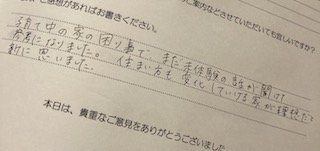 ご感想があればお書きください。
案内などさせていただいても宜しいですか?
建て中の家の困り事で、まだ未体験の話が聞けて
参考になりました。住まい方も変化していける家が理想だと
新に思いました。
本日は、貴重なご意見をありがとうございました